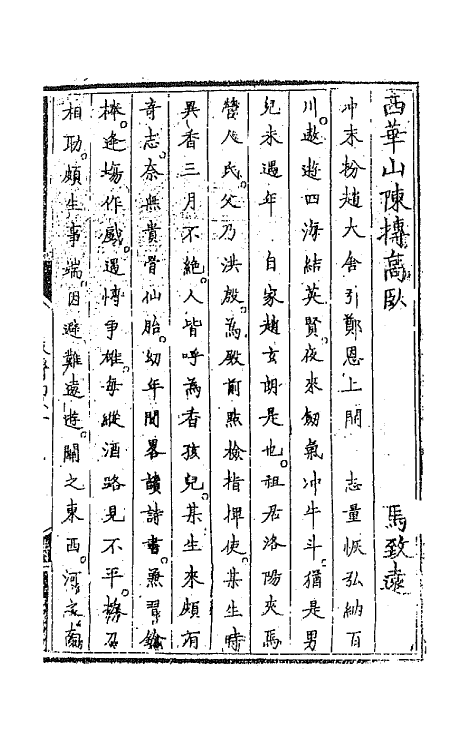 西華山陳摶高臥　馬致遠
冲末扮趙大舍引鄭恩上開　志量恢弘納百
川。遨遊四海結英賢。夜來劒氣冲牛斗。猶是男
兒未遇年　自家趙玄朗是也。祖居洛陽夾馬
營人氏。父乃洪殷。為殿前點檢指揮使。某生時
異香三月不絕。人皆呼為香孩兒。某生來頗有
奇志。奈無貴骨仙胎。幼年間畧讀詩書。兼習鎗
棒。逢塲作戲。遇博爭雄。每縱酒路見不平。撥刀
相助。頗生事端。因避難遠遊。關之東西。河之南